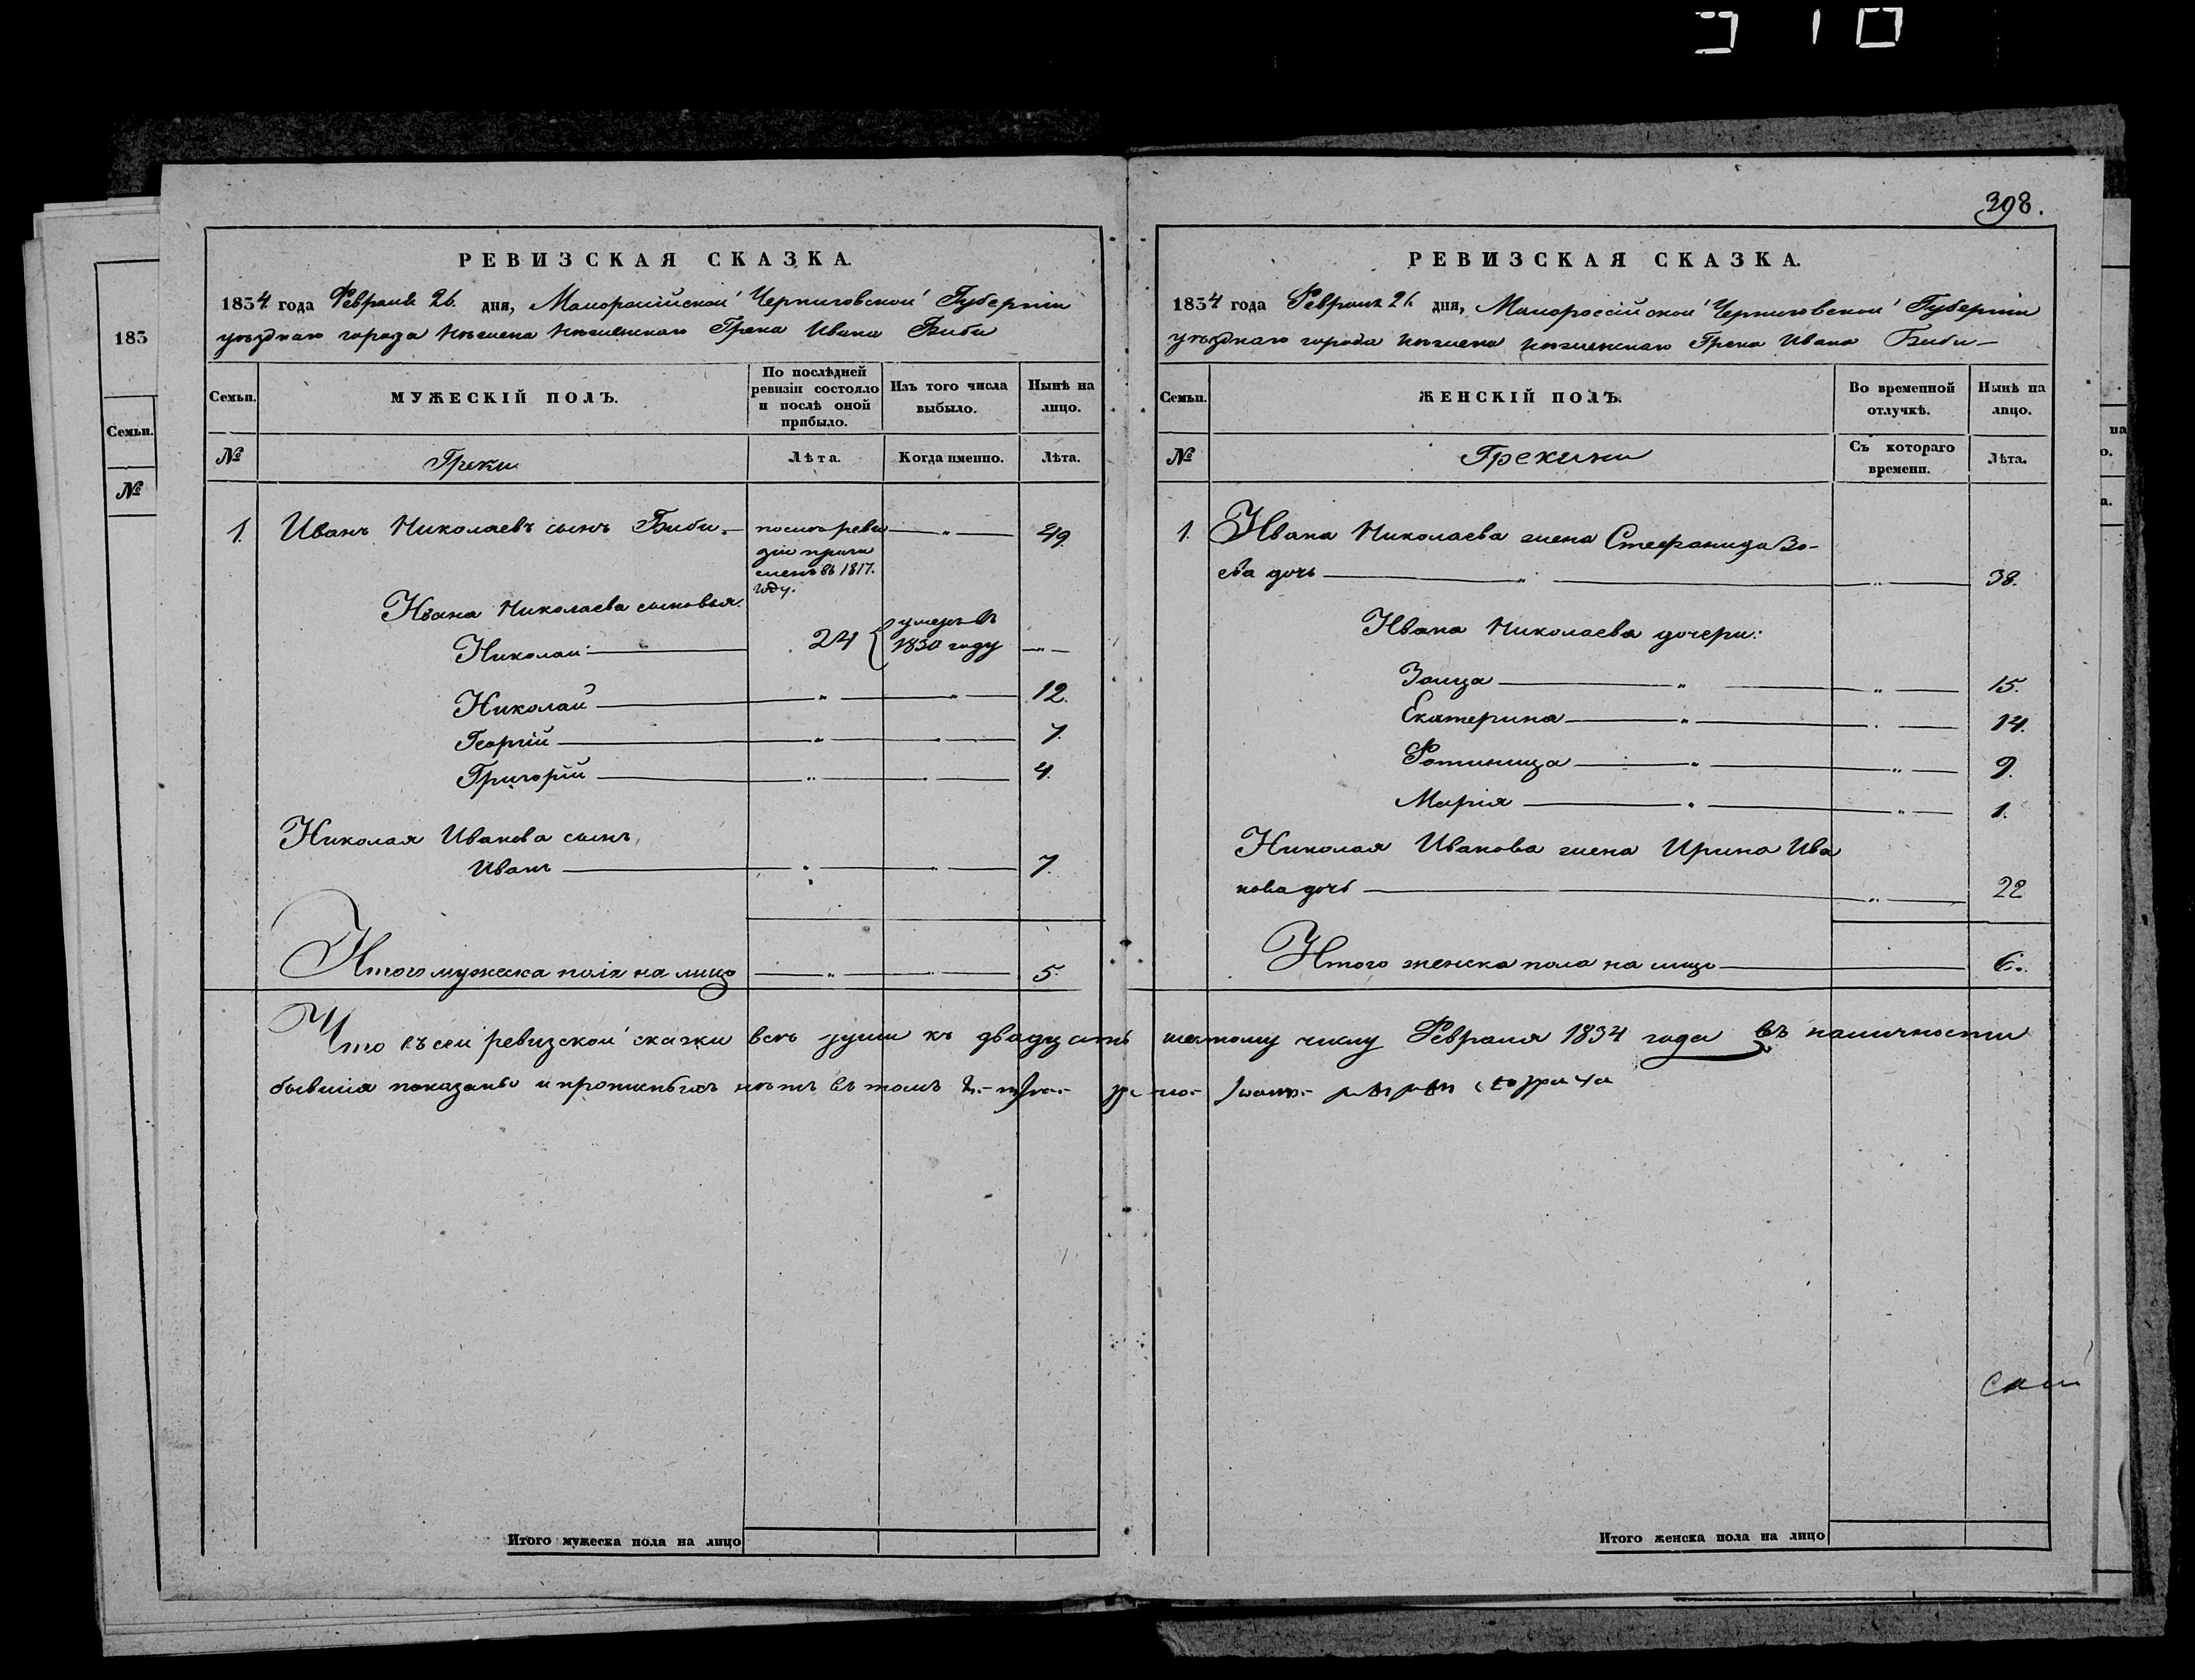 398.
РЕВИЗСКАЯ СКАЗКА.
1834 года Февраля 26. дня, Малоросійской Черниговской Губерніи
уѣзднаго города Нѣжина Нѣжинскаго Грека Ивана Биби
Семьи.
МУЖЕСКІЙ ПОЛЪ.
По послѣдней ревизіи состояло и послѣ оной прибыло.
Изъ того числа выбыло.
Нынѣ на лицо.
№
Греки.
Лѣта.
Когда именно.
Лѣта.
1. Иванъ Николаевъ сынъ Биби. — послѣ реви — " — 49.
зіи причи
сленъ въ 1817.
году.
Ивана Николаева сыновья.
Николай — 24 { умеръ въ 1830 году — " —
Николай — " — " — 12.
Георгій — " — " — 7.
Григорій — " — " — 4.
Николая Иванова сынъ,
Иванъ — " — " — 7.
Итого мужеска пола на лицо — " — " — 5.
Что въ сей ревизской сказки всѣ души къ двадцать
бывшія показаны и прописныхъ нѣтъ въ томъ
Итого мужеска пола на лицо
РЕВИЗСКАЯ СКАЗКА.
1834 года Февраля 26. дня, Малороссійской Черниговской Губерніи
уѣзднаго города Нѣжина Нѣжинскаго Грека Ивана Биби —
Семьи.
ЖЕНСКІЙ ПОЛЪ.
Во временной отлучкѣ.
Нынѣ на лицо.
№
Грекини
Съ котораго времени.
Лѣта.
1. Ивана Николаева жена Стефанида Зо-
ева дочь — " — " — 38.
Ивана Николаева дочери:
Зоица — " — " — 15.
Екатерина — " — . — 14.
Фотиница — " — " — 9.
Марія — " — " — 1.
Николая Иванова жена Ирина Ива
нова дочь — " — 22
Итого женска пола на лицо — 6.
шестому числу Февраля 1834 года въ наличности
Итого женска пола на лицо
183
Семьи.
№